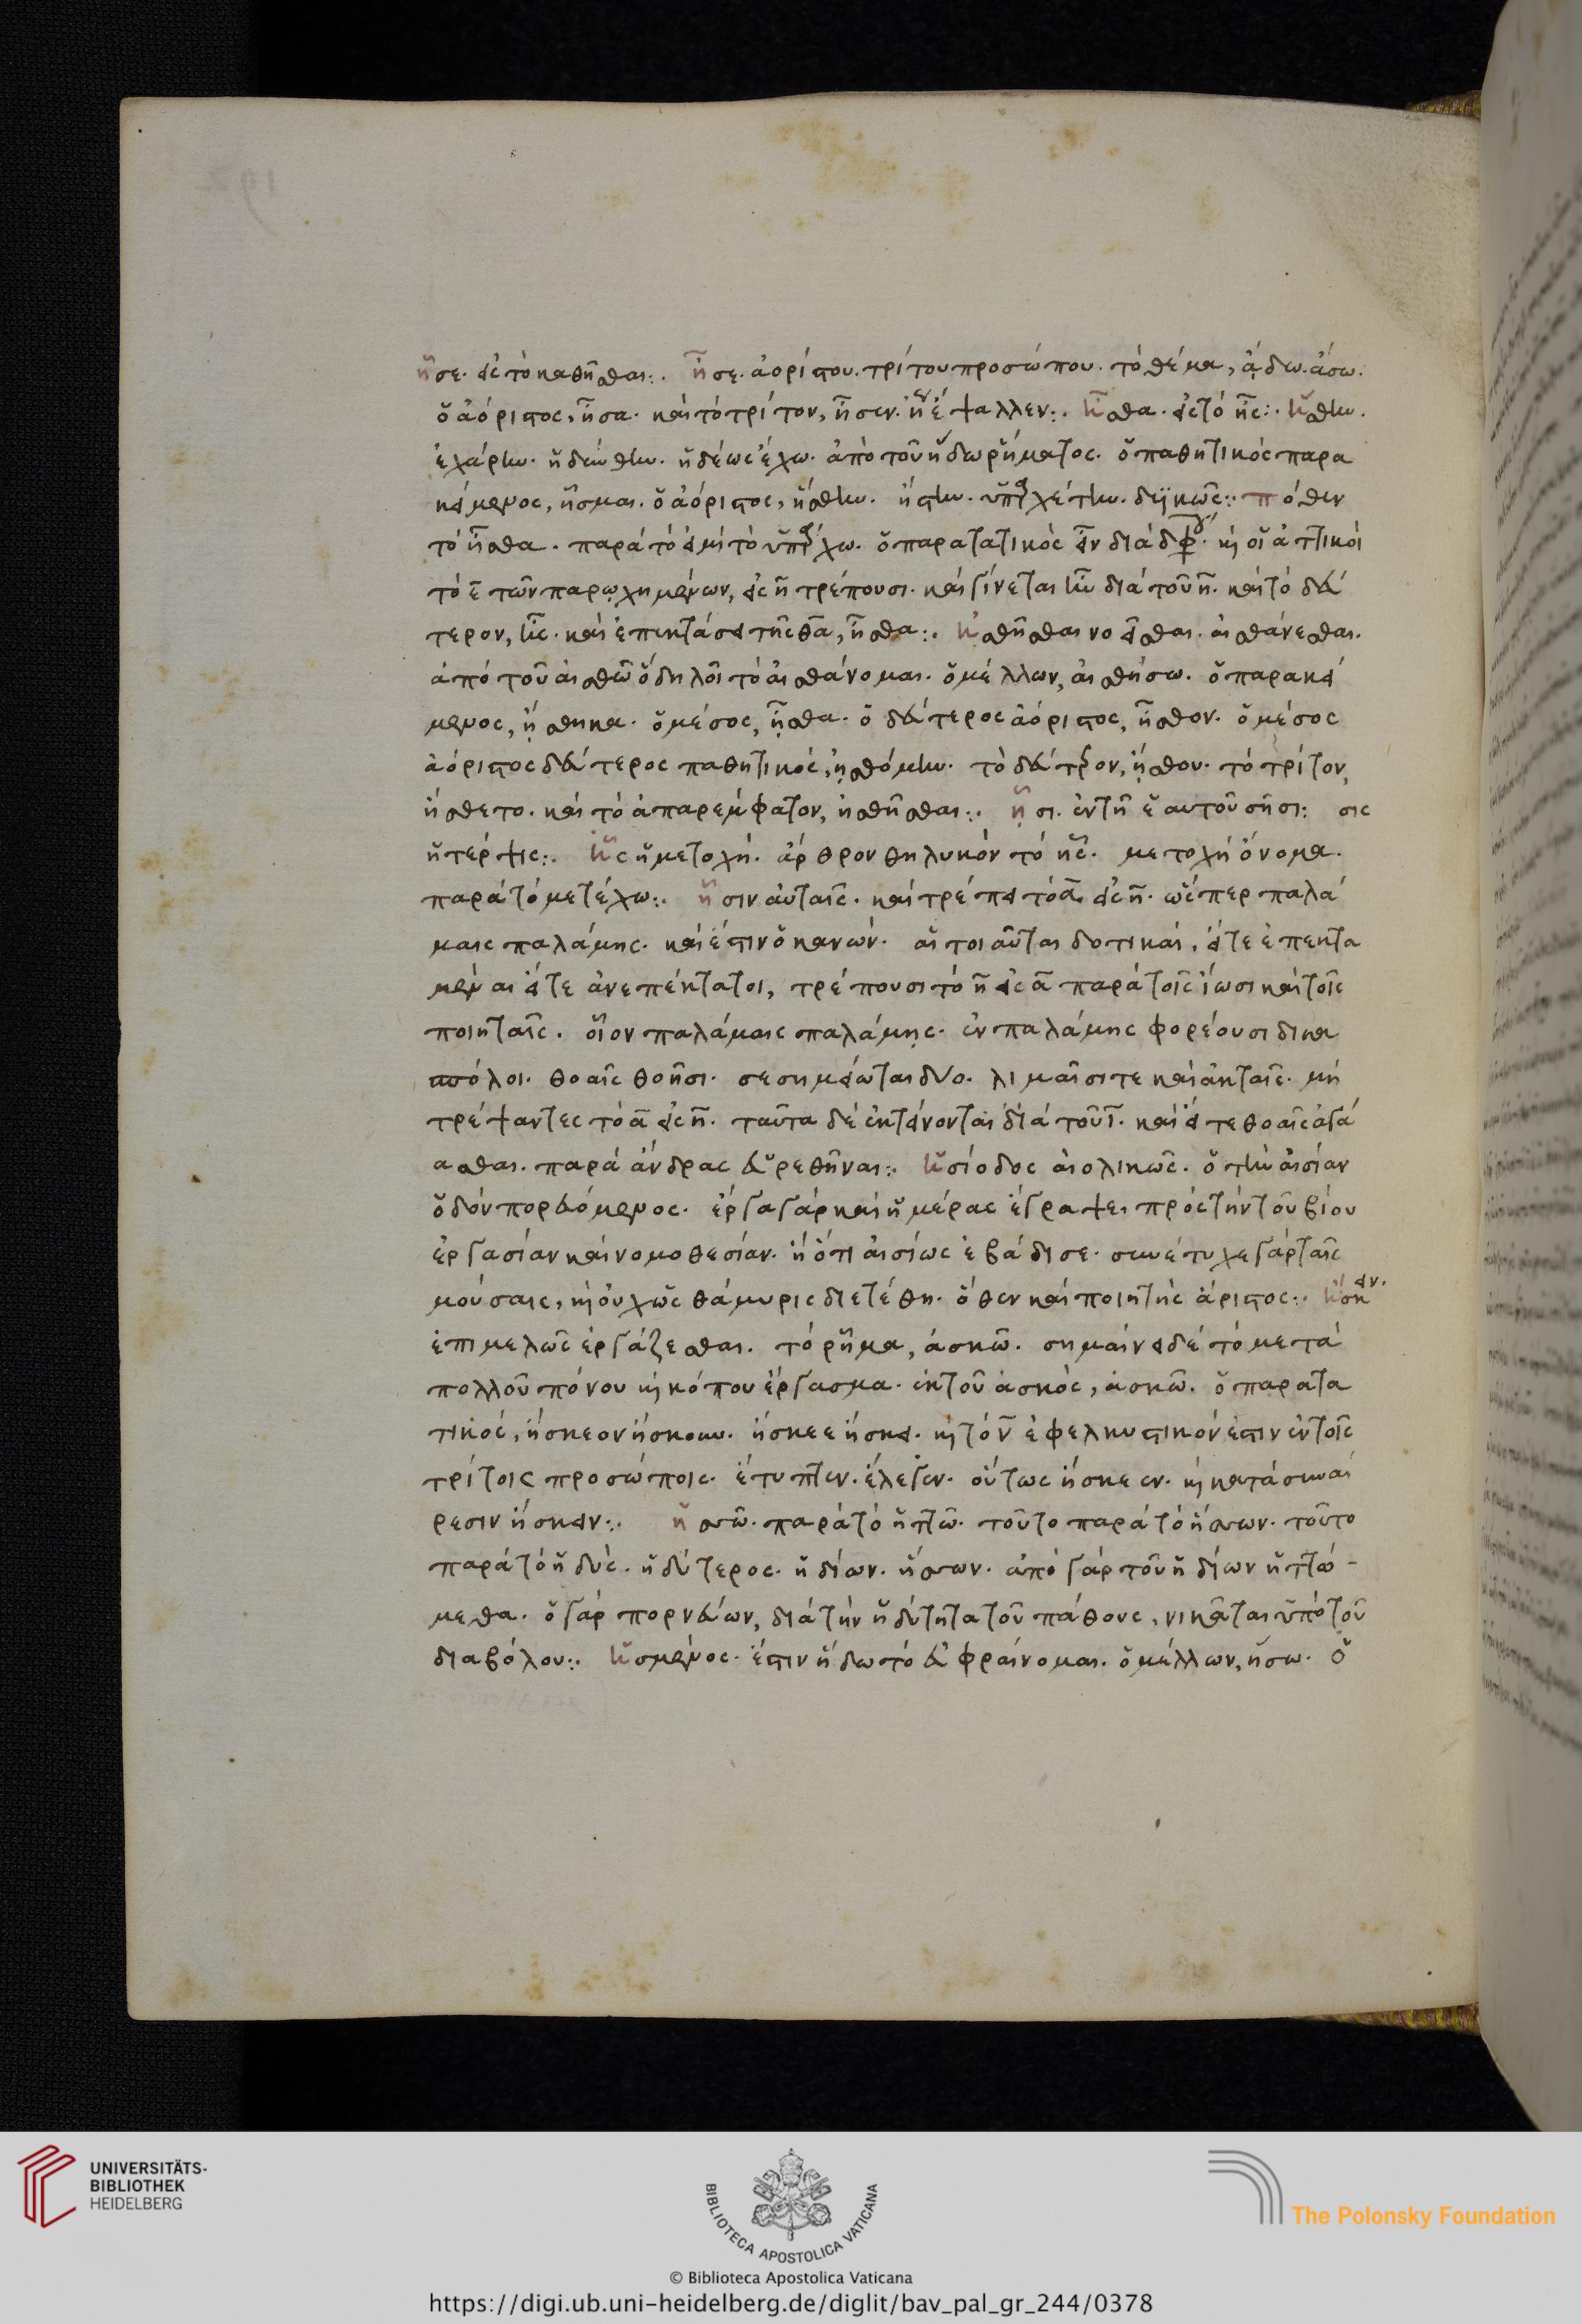 ἧσε. εἰς τὸ καθῆσθαι:. ἦσε. ἀορίστου. τρίτου προσώπου. τὸ θέμα, ἄδω. ἄσω.
ὁ ἀόριστος, ἦσα. καὶ τὸ τρίτον, ἦσεν. ἢ ἔψαλλεν:. ἦσθα. εἰς τὸ ἦς:. ἥσθην.
ἐχάρην. ἡδύνθην. ἡδέως ἔχω. ἀπὸ τοῦ ἥδω ῥήματος. ὁ παθητικὸς παρα
κείμενος, ἧσμαι. ὁ ἀόριστος, ἥσθην. ἤστην. ὑπηρχέτην. δυϊκῶς:. πόθεν
τὸ ἦσθα. παρὰ τὸ εἰμὶ τὸ ὑπάρχω. ὁ παρατατικὸς εἶν διὰ διφθόγγου. καὶ οἱ ἀττικοὶ
τὸ ε τῶν παρῳχημένων, εἰς η τρέπουσι. καὶ γίνεται ἦν διὰ τοῦ η. καὶ τὸ δεύ
τερον, ἦς. καὶ ἐπεκτάσει τῆς θα, ἦσθα:. ἠσθῆσθαι νοεῖσθαι. αἰσθάνεσθαι.
ἀπὸ τοῦ αἰσθῶ ὃ δηλοῖ τὸ αἰσθάνομαι. ὁ μέλλων, αἰσθήσω. ὁ παρακεί
μενος, ᾔσθηκα. ὁ μέσος, ᾖσθα. ὁ δεύτερος ἀόριστος, ᾖσθον. ὁ μέσος
ἀόριστος δεύτερος παθητικός, ᾐσθόμην. τὸ δεύτερον, ᾔσθου. τὸ τρίτον,
ἤσθετο. καὶ τὸ ἀπαρέμφατον, ἠσθῆσθαι:. ᾗσι. ἐν τῇ ἑαυτοῦ σῇσι: σις
ἡ τέρψις:. ἧς ἡ μετοχή. ἄρθρον θηλυκὸν τὸ ἧς. μετοχὴ ὄνομα.
παρὰ τὸ μετέχω:. ἧσιν αὐταῖς. καὶ τρέπει τὸ α εἰς η. ὥσπερ παλά
μαις παλάμης. καὶ ἔστιν ὁ κανών. αἱ τοιαῦται δοτικαί, εἴτε ἐπεκτα
μέναι εἴτε ἀνεπέκτατοι, τρέπουσι τὸ η εἰς α παρὰ τοῖς ἴωσι καὶ τοῖς
ποιηταῖς. οἷον παλάμαις παλάμῃς. ἐν παλάμης φορέουσι δικα
σπόλοι. θοαῖς θοῇσι. σεσημείωται δύο. λιμαῖσι τε καὶ ἀκταῖς. μὴ
τρέψαντες τὸ α εἰς η. ταῦτα δὲ ἐκτείνονται διὰ τοῦ ι. καὶ εἴ τε θοαῖς ἀγά
ασθαι. παρὰ ἄνδρας εὑρεθῆναι:. ἡσίοδος αἰολικῶς. ὁ τὴν αἰσίαν
ὁδὸν πορευόμενος. ἔργα γὰρ καὶ ἡμέρας ἔγραψε, πρὸς τὴν τοῦ βίου
ἐργασίαν καὶ νομοθεσίαν. ἢ ὅτι αἰσίως ἐβάδισε. συνέτυχε γὰρ ταῖς
μούσαις, καὶ οὐχ ὡς θάμυρις διετέθη. ὅθεν καὶ ποιητὴς ἄριστος:. ἤσκειν.
ἐπιμελῶς ἐργάζεσθαι. τὸ ῥῆμα, ἀσκῶ. σημαίνει δὲ τὸ μετὰ
πολλοῦ πόνου καὶ κόπου ἔργασμα. ἐκ τοῦ ἀσκὸς, ἀσκῶ. ὁ παρατα
τικός, ἤσκεον ἤσκουν. ἤσκεε ἤσκει. καὶ τὸ ν ἐφελκυστικόν ἐστιν ἐν τοῖς
τρίτοις προσώποις. ἔτυπτεν. ἔλεγεν. οὕτως ἤσκεεν. καὶ κατὰ συναί
ρεσιν ἤσκειν:. ἡσσῶ. παρὰ τὸ ἡττῶ. τοῦτο παρὰ τὸ ἥσσων. τοῦτο
παρὰ τὸ ἡδύς. ἡδύτερος. ἡδίων. ἥσσων. ἀπὸ γὰρ τοῦ ἡδίων ἡττώ-
μεθα. ὁ γὰρ πορνεύων, διὰ τὴν ἡδύτητα τοῦ πάθους, νικᾶται ὑπὸ τοῦ
διαβόλου:. ἡσμένος. ἔστιν ἥδω τὸ εὐφραίνομαι. ὁ μέλλων, ἥσω. ὁ
UNIVERSITÄTS-
BIBLIOTHEK
HEIDELBERG
BIBLIOTECA APOSTOLICA VATICANA
The Polonsky Foundation
© Biblioteca Apostolica Vaticana
https://digi.ub.uni-heidelberg.de/diglit/bav_pal_gr_244/0378